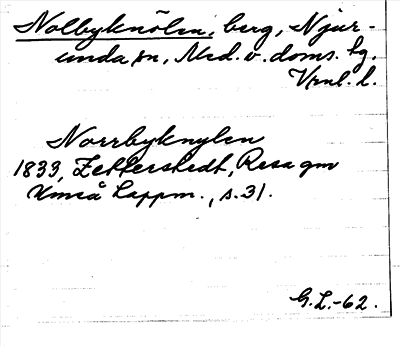 Nolbyknölen, berg, Njur-
unda sn, Med. v. doms. tg,
Vrnl. l.
Norrbyknylen
1833, Zetterstedt, Resa gm
Umeå Lappm., s. 31.
G.L.-62.